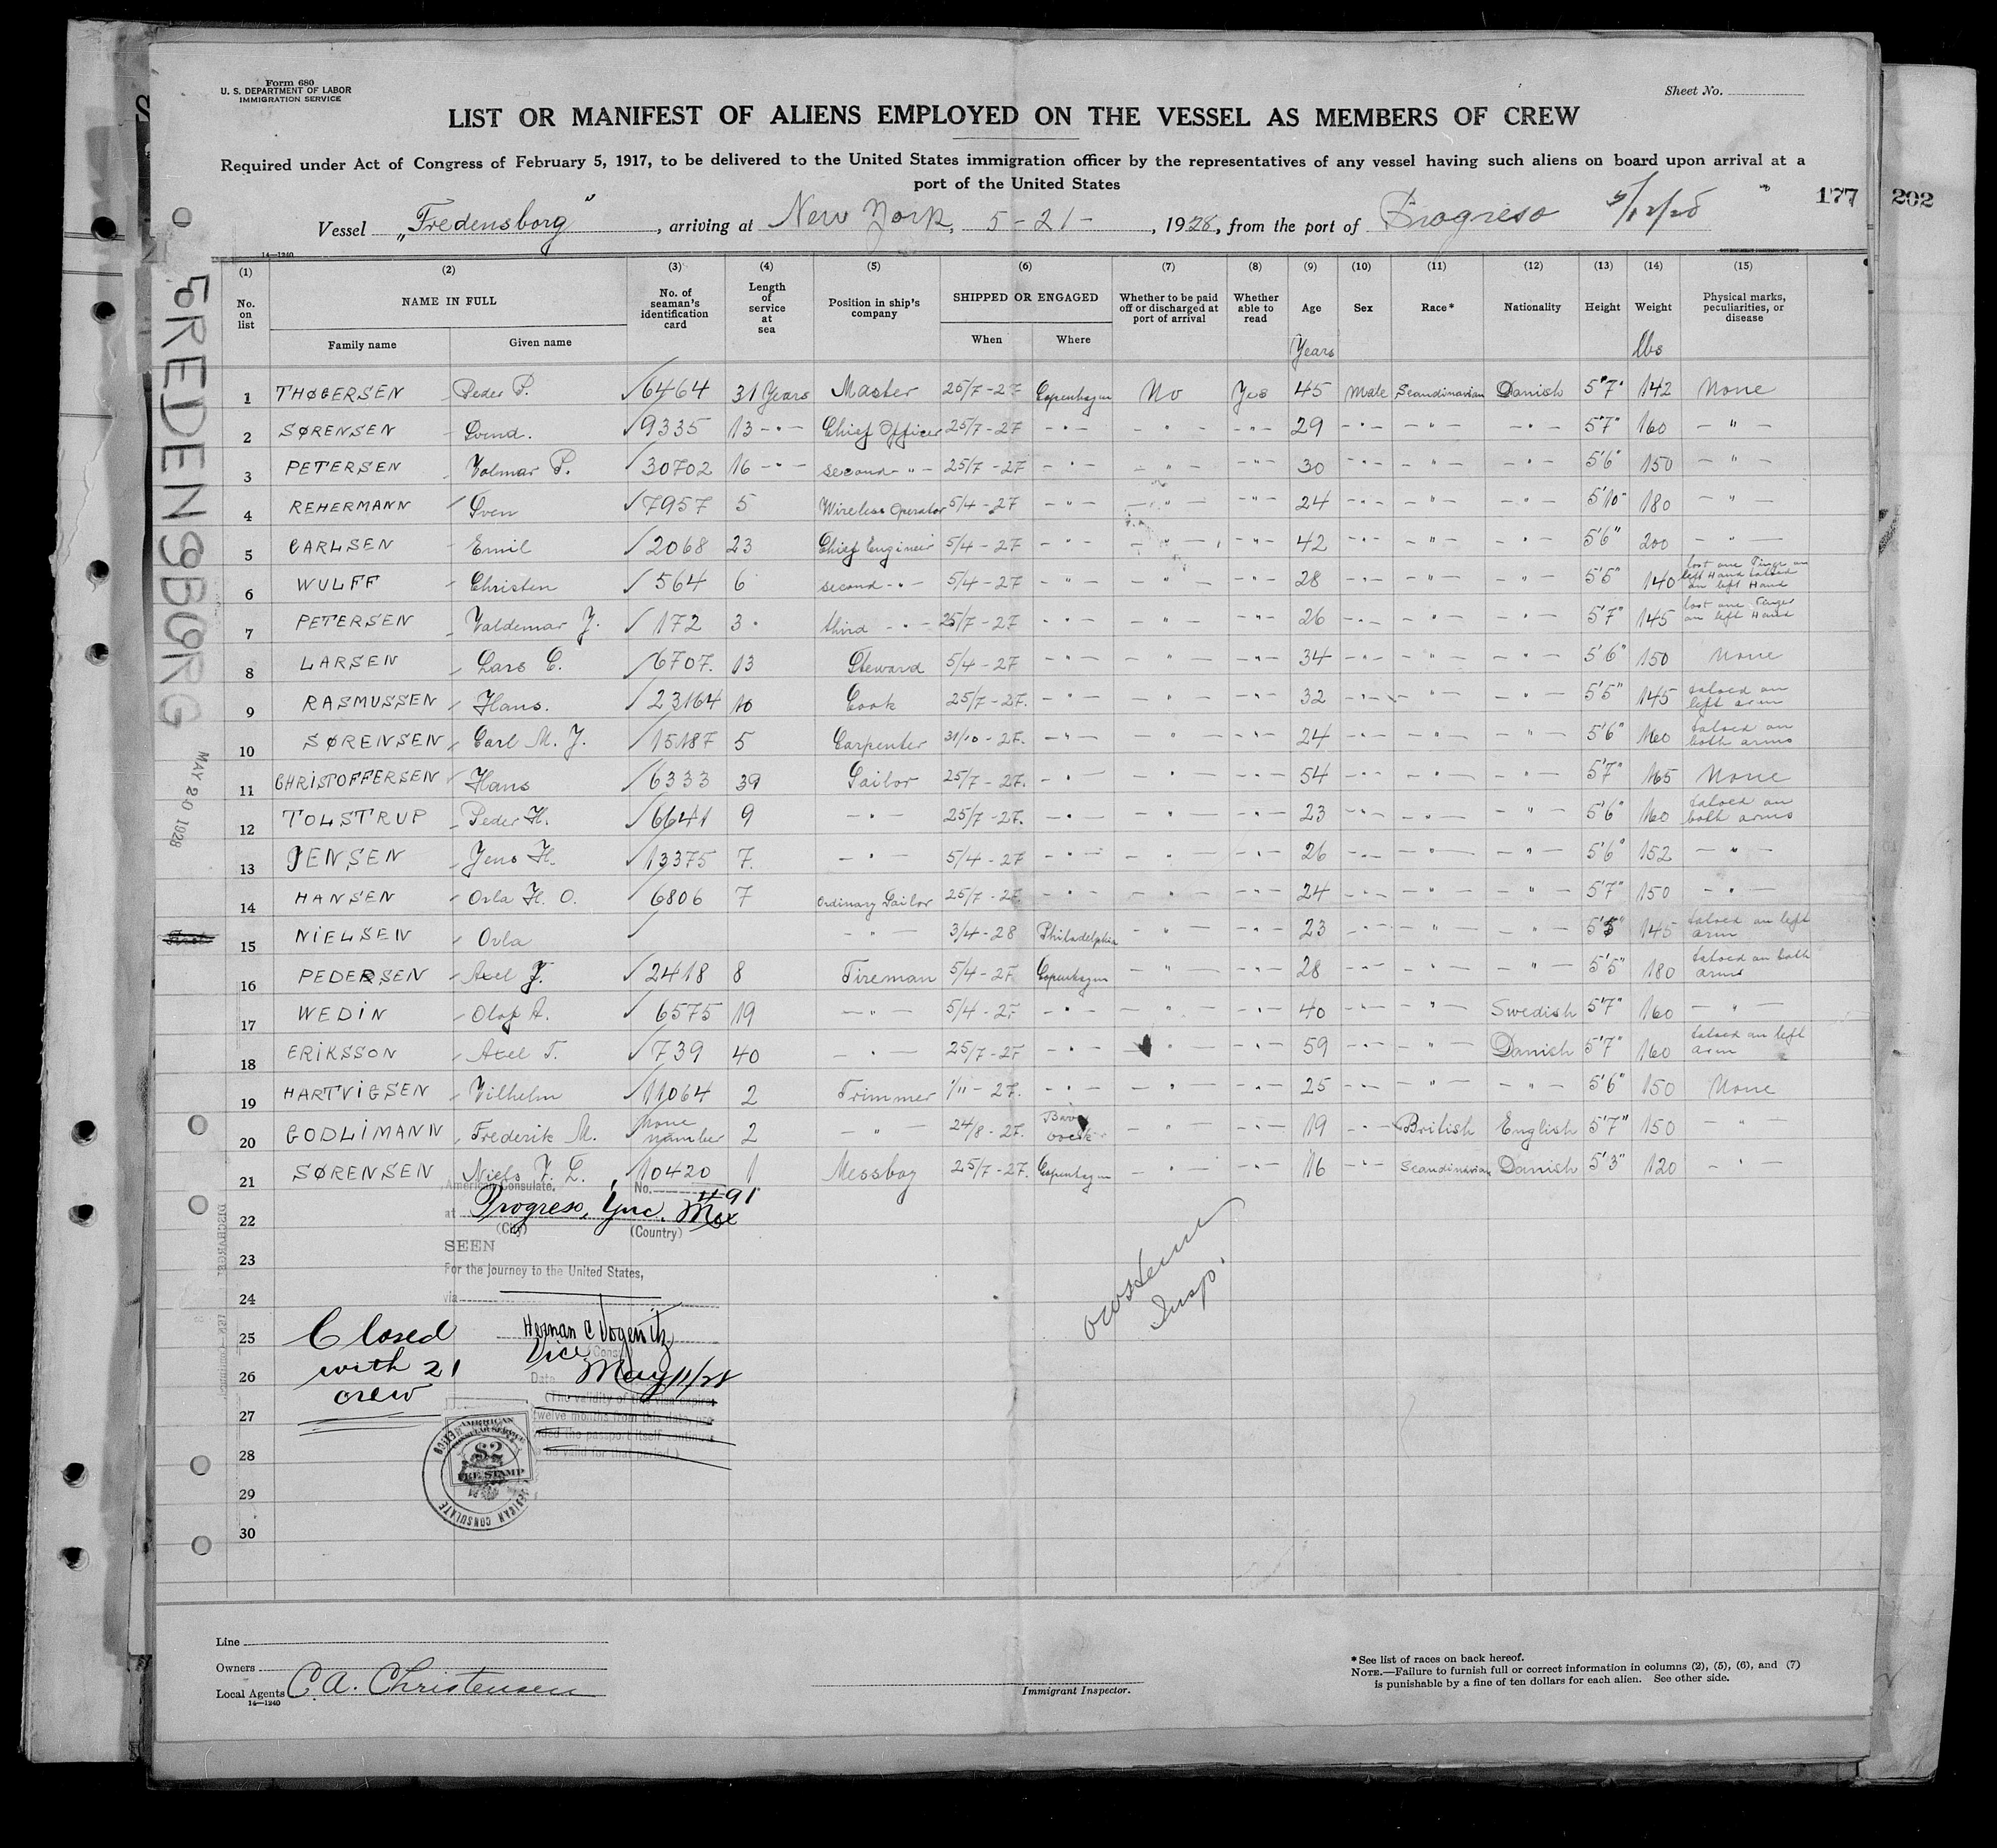 Form 680
U. S. DEPARTMENT OF LABOR
IMMIGRATION SERVICE
Sheet No.
LIST OR MANIFEST OF ALIENS EMPLOYED ON THE VESSEL AS MEMBERS OF CREW
Required under Act of Congress of February 5, 1917, to be delivered to the United States immigration officer by the representatives of any vessel having such aliens on board upon arrival at a
port of the United States
177 202
Vessel „Fredensborg", arriving at New York, 5-21-, 1928, from the port of Progreso 5/12/28
14—1240
(1) (2) (3) (4) (5) (6) (7) (8) (9) (10) (11) (12) (13) (14) (15)
No. on list NAME IN FULL Family name Given name No. of seaman's identification card Length of service at sea Position in ship's company SHIPPED OR ENGAGED When Where Whether to be paid off or discharged at port of arrival Whether able to read Age Sex Race* Nationality Height Weight Physical marks, peculiarities, or disease
Years lbs
1 THØGERSEN Peder P. 6464 31 Years Master 25/7-27 Copenhagen No Yes 45 Male Scandinavian Danish 5'7" 142 None
2 SØRENSEN Svend. 9335 13 -"- Chief Officer 25/7-27 -"- -"- -"- 29 -"- -"- -"- 5'7" 160 -"-
3 PETERSEN Volmar P. 30702 16 -"- second -"- 25/7-27 -"- -"- -"- 30 -"- -"- -"- 5'6" 150 -"-
4 REHERMANN Sven 7957 5 Wireless Operator 5/4-27 -"- -"- -"- 24 -"- -"- -"- 5'10" 180 -"-
5 CARLSEN Emil 2068 23 Chief Engineer 5/4-27 -"- -"- -"- 42 -"- -"- -"- 5'6" 200 -"-
6 WULFF Christen 564 6 second -"- 5/4-27 -"- -"- -"- 28 -"- -"- -"- 5'5" 140 lost one Finger on left Hand tatoed on left Hand
7 PETERSEN Valdemar J. 172 3 third -"- 25/7-27 -"- -"- -"- 26 -"- -"- -"- 5'7" 145 lost one Finger on left Hand
8 LARSEN Lars C. 6707. 13 Steward 5/4-27 -"- -"- -"- 34 -"- -"- -"- 5'6" 150 None
9 RASMUSSEN Hans. 23164 10 Cook 25/7-27. -"- -"- -"- 32 -"- -"- -"- 5'5" 145 tatoed on left arm
10 SØRENSEN Carl M. J. 15187 5 Carpenter 31/10-27. -"- -"- -"- 24 -"- -"- -"- 5'6" 160 tatoed on both arms
11 CHRISTOFFERSEN Hans 6333 39 Sailor 25/7-27. -"- -"- -"- 54 -"- -"- -"- 5'7" 165 None
12 TOLSTRUP Peder H. 6641 9 -"- 25/7-27. -"- -"- -"- 23 -"- -"- -"- 5'6" 160 tatoed on both arms
13 JENSEN Jens H. 13375 7. -"- 5/4-27 -"- -"- -"- 26 -"- -"- -"- 5'6" 152 -"-
14 HANSEN Orla H. O. 6806 7 Ordinary Sailor 25/7-27. -"- -"- -"- 24 -"- -"- -"- 5'7" 150 -"-
15 NIELSEN Orla -"- 3/4-28 Philadelphia -"- -"- 23 -"- -"- -"- 5'5" 145 tatoed on left arm
16 PEDERSEN Axel J. 2418 8 Fireman 5/4-27 Copenhagen -"- -"- 28 -"- -"- -"- 5'5" 180 tatoed on both arms
17 WEDIN Olof A. 6575 19 -"- 5/4-27 -"- -"- -"- 40 -"- -"- Swedish 5'7" 160 -"-
18 ERIKSSON Axel T. 739 40 -"- 25/7-27 -"- -"- -"- 59 -"- -"- Danish 5'7" 160 tatoed on left arm
19 HARTVIGSEN Vilhelm 11064 2 Trimmer 1/11-27. -"- -"- -"- 25 -"- -"- -"- 5'6" 150 None
20 GODLIMANN Frederik M. None number 2 -"- 24/8-27. -"- -"- 19 -"- British English 5'7" 150 -"-
21 SØRENSEN Niels J. L. 10420 1 Messboy 25/7-27. Copenhagen -"- -"- 16 -"- Scandinavian Danish 5'3" 120 -"-
22
23
24
25
26
27
28
29
30
American Consulate, No. 491
at Progreso, Yuc. Mex
(City) (Country)
SEEN
For the journey to the United States,
via
Herman C. Vogenitz
Vice (Consul)
Date May 11/28
(The validity of this visa expires
twelve months from this date, pro-
vided the passport itself continues
to be valid for that period.)
Closed
with 21
crew
Insp.
AMERICAN
CONSULAR SERVICE
$2
FEE STAMP
AMERICAN CONSULATE
MEXICO
FREDENSBORG
MAY 20 1928
Line
Owners
Local Agents C. A. Christensen
14—1240
Immigrant Inspector.
*See list of races on back hereof.
NOTE.—Failure to furnish full or correct information in columns (2), (5), (6), and (7)
is punishable by a fine of ten dollars for each alien. See other side.